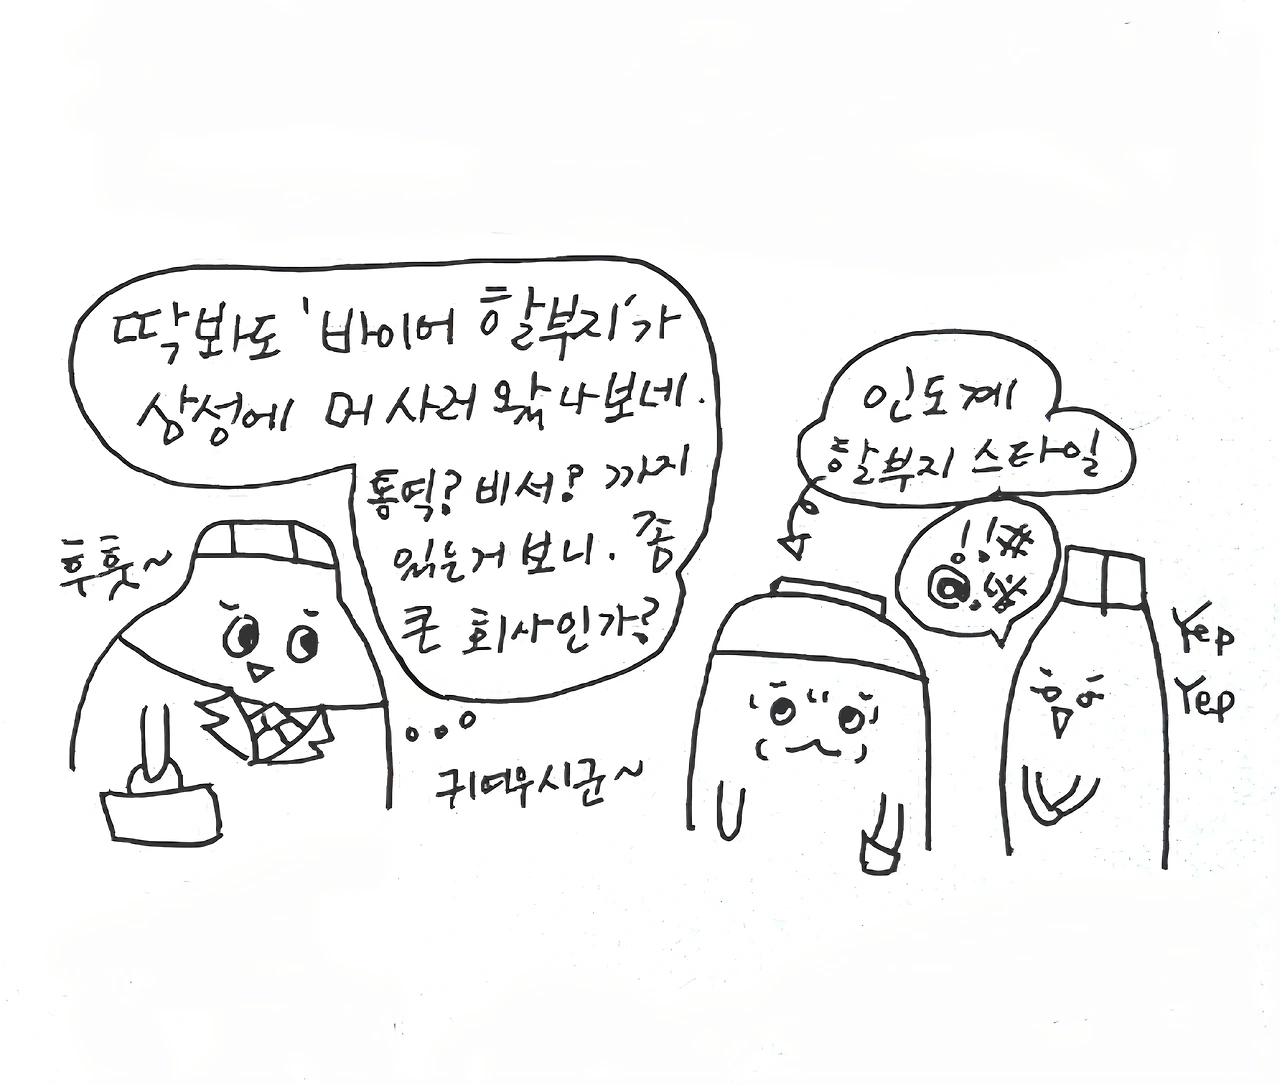 딱봐도 '바이어 할부지'가
상성에 머 사러 왔나보네.
통역? 비서? 까지
있는거 보니. 좀
큰 회사인가?
후훗~
귀여우시군~
인도계
할부지 스타일
!.!.#
@.※
Yep
Yep